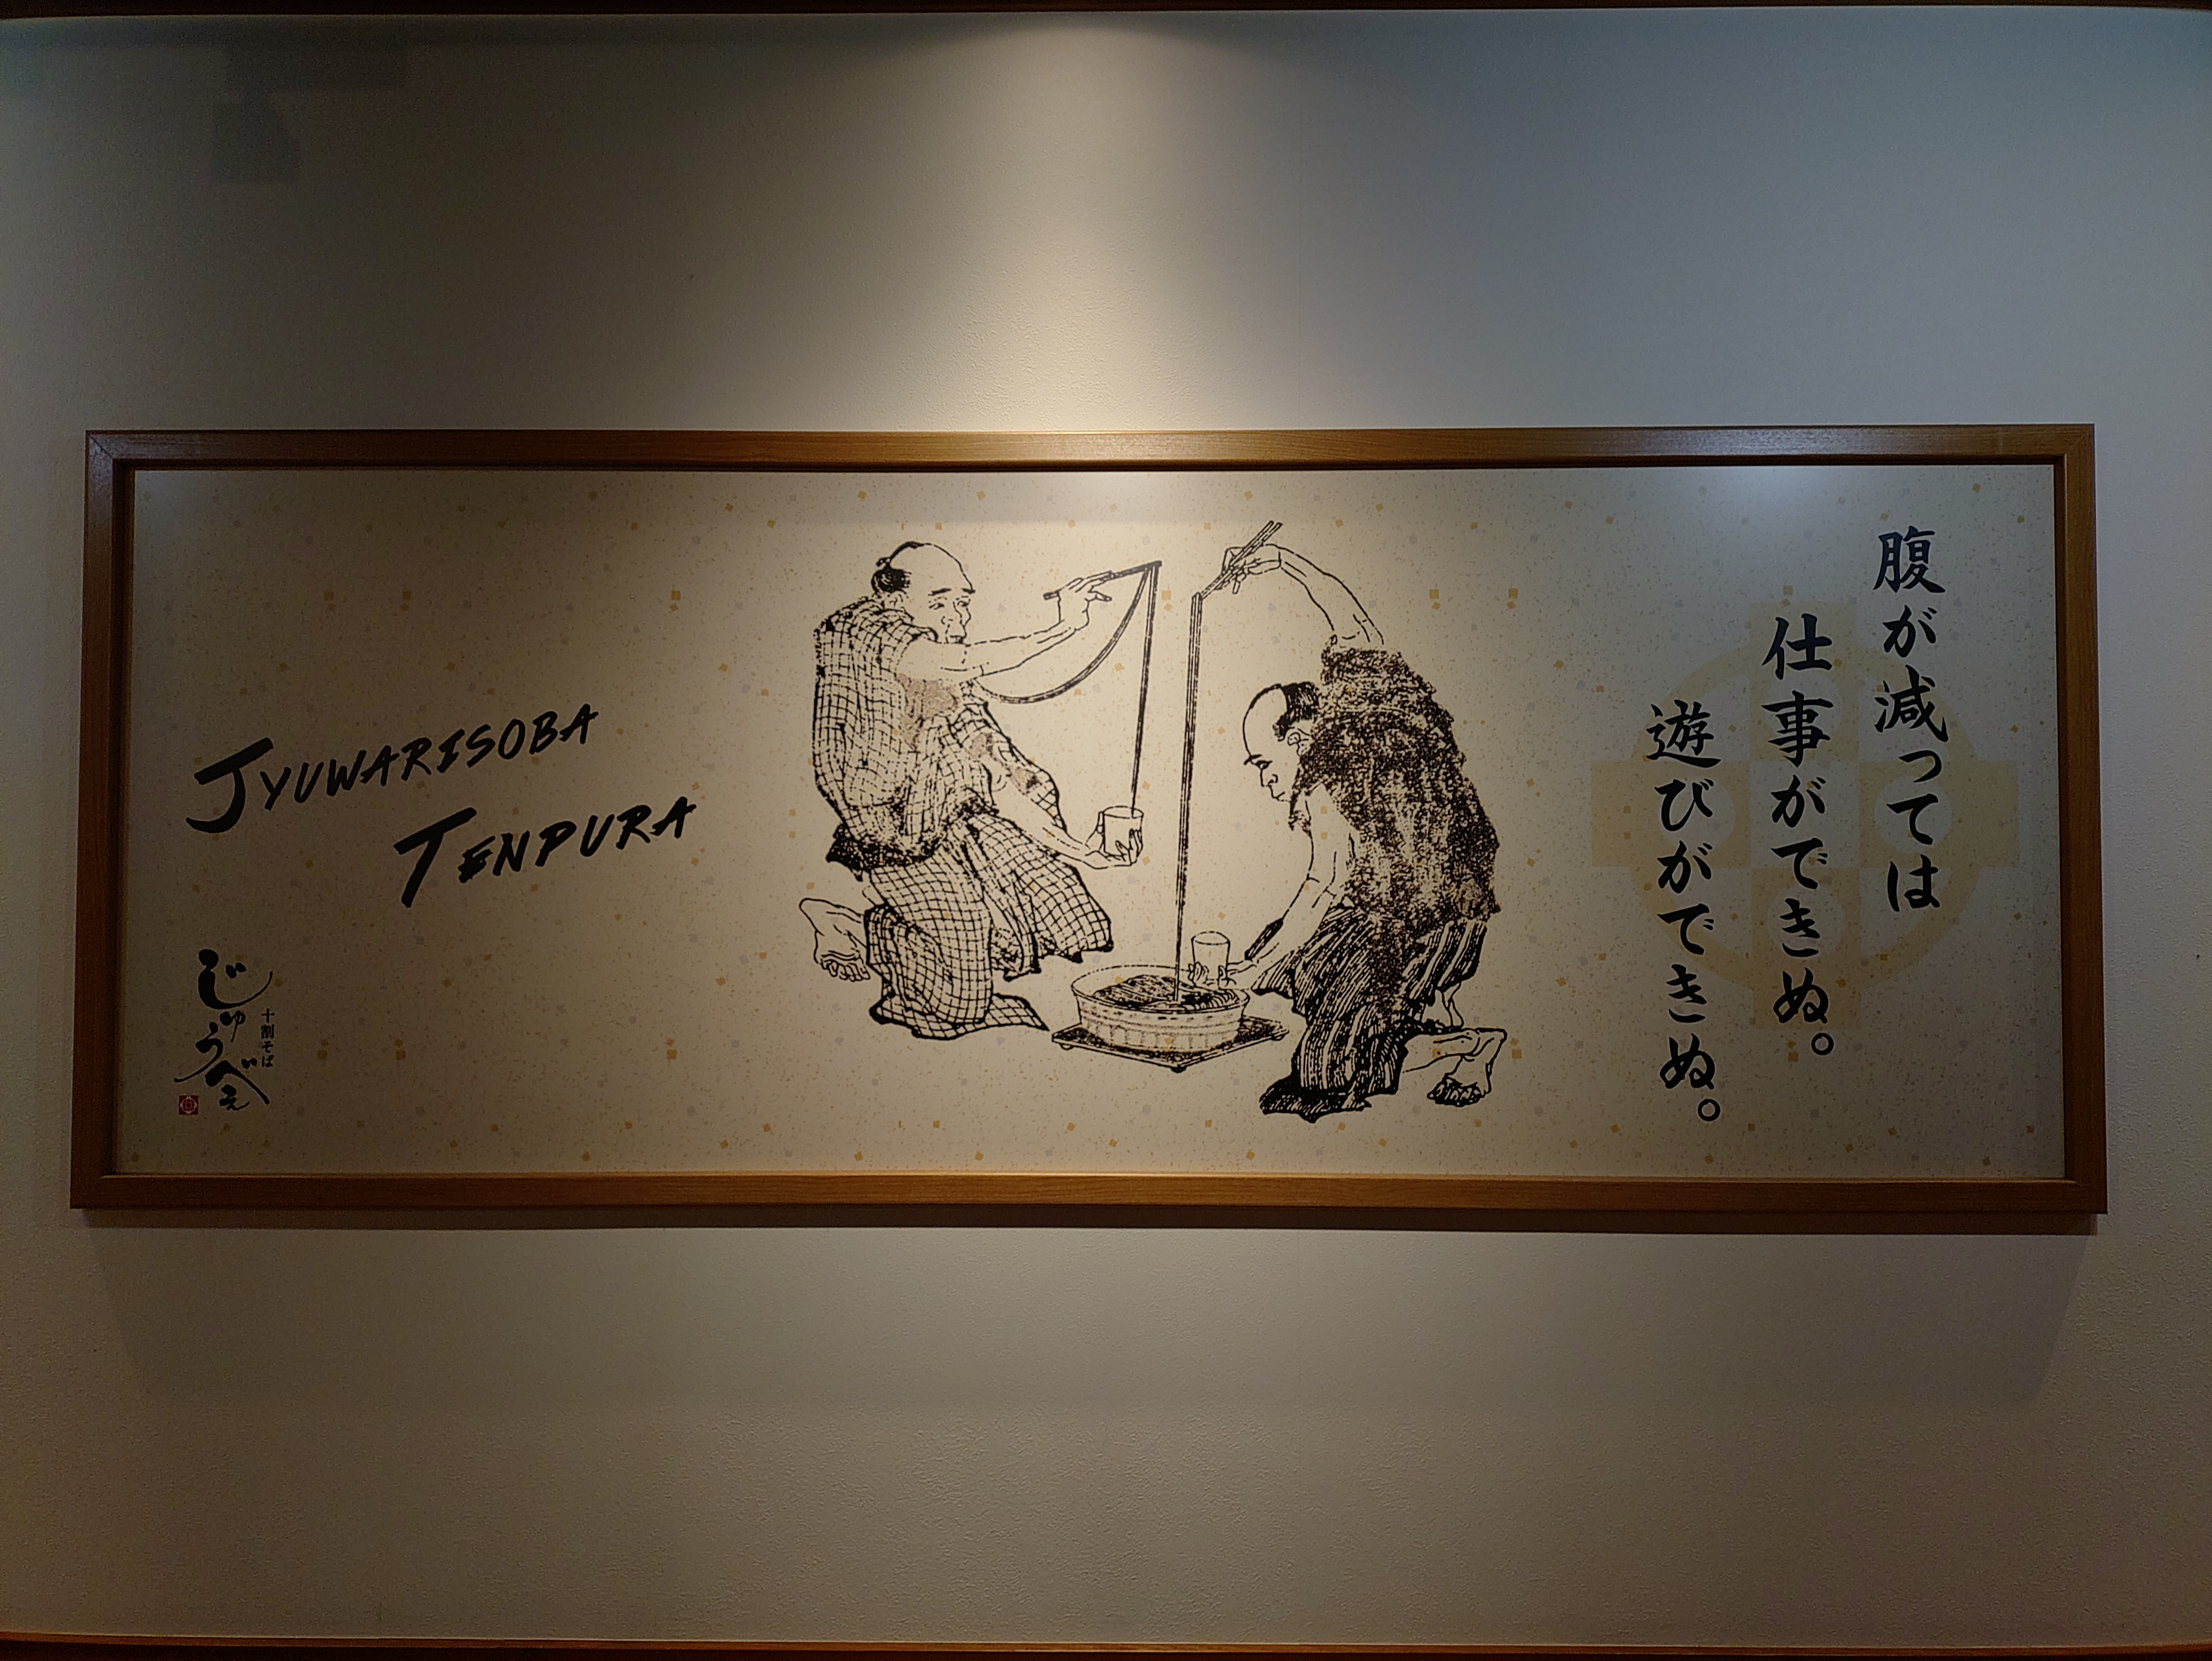 腹が減っては
仕事ができぬ。
遊びができぬ。
JYUWARISOBA
TENPURA
十割そば
じゅうべえ